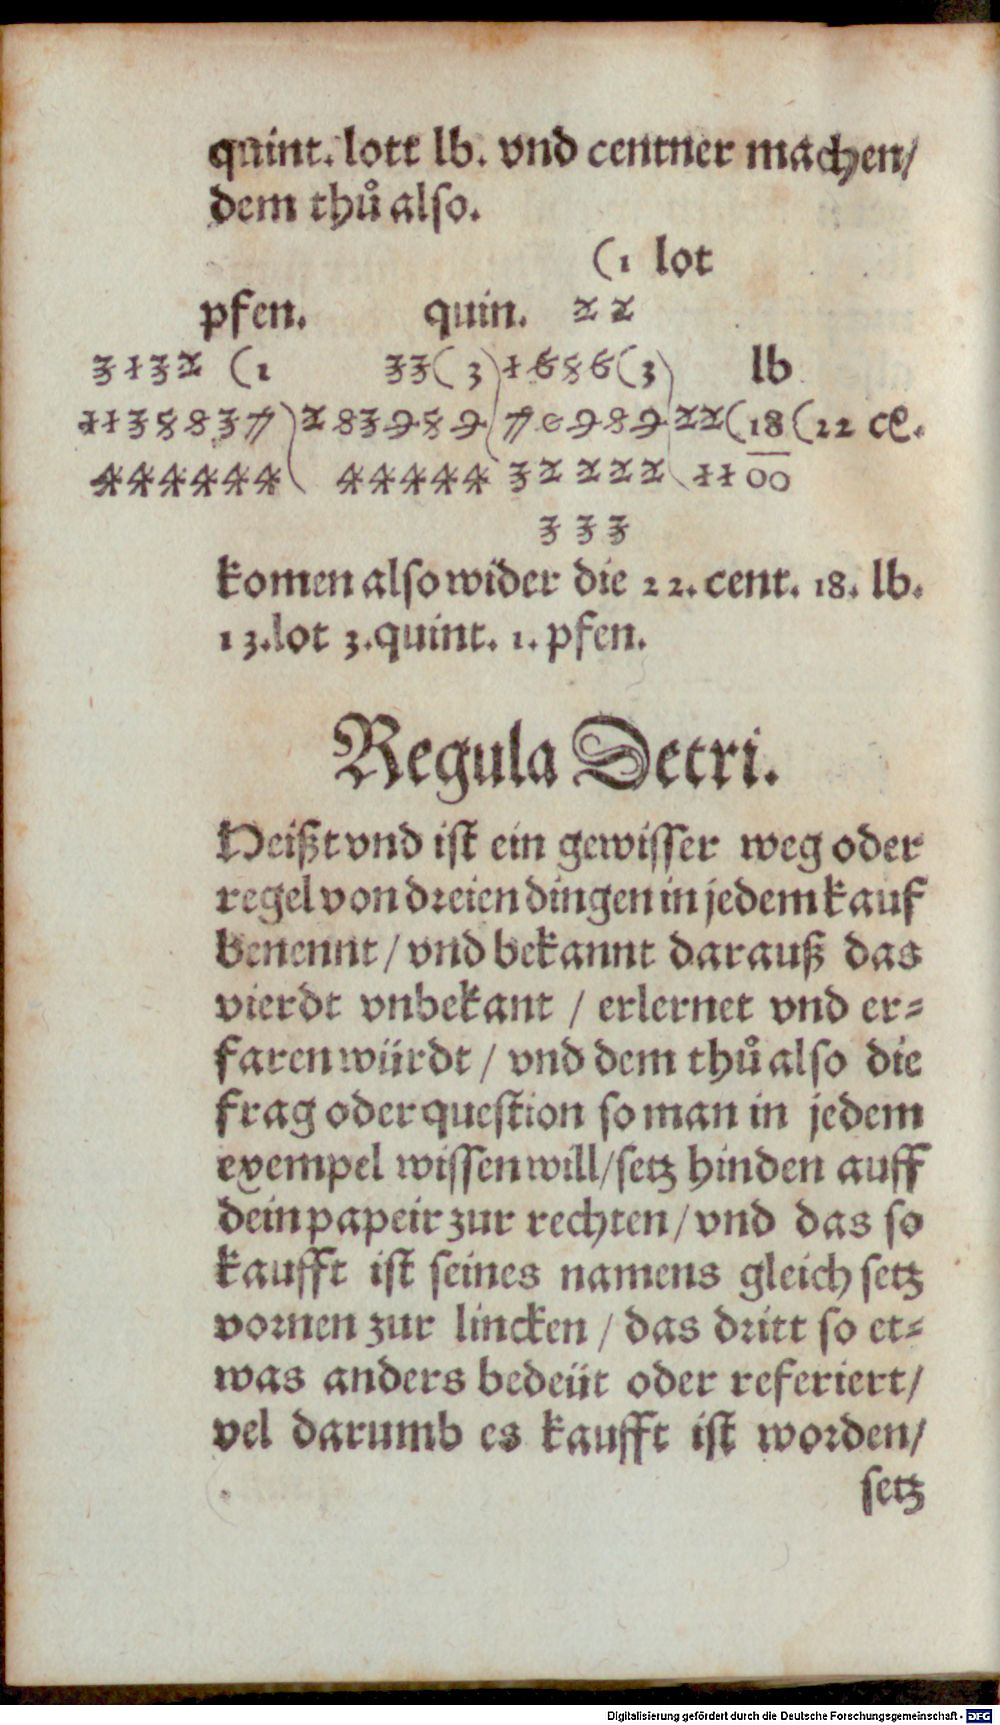 quint. lott lb. vnd centner machen/
dem thuͦ also.
(1 lot
pfen. quin. 2 2
3132 (1 33(3) 1656(3) lb
1135837) 283959( 70989 22(18(22 cē.
444444 44444 32222 1100
333
komen also wider die 22. cent. 18. lb.
13. lot 3. quint. 1. pfen.
Regula Detri.
Heißt vnd ist ein gewisser weg oder
regel von dreien dingen in jedem kauf
benennt / vnd bekannt darauß das
vierdt vnbekant / erlernet vnd er=
faren würdt / vnd dem thuͦ also die
frag oder question so man in jedem
exempel wissen will / setz hinden auff
dein papeir zur rechten / vnd das so
kaufft ist seines namens gleich setz
vornen zur lincken / das dritt so et=
was anders bedeüt oder referiert /
vel darumb es kaufft ist worden /
setz
Digitalisierung gefördert durch die Deutsche Forschungsgemeinschaft - DFG